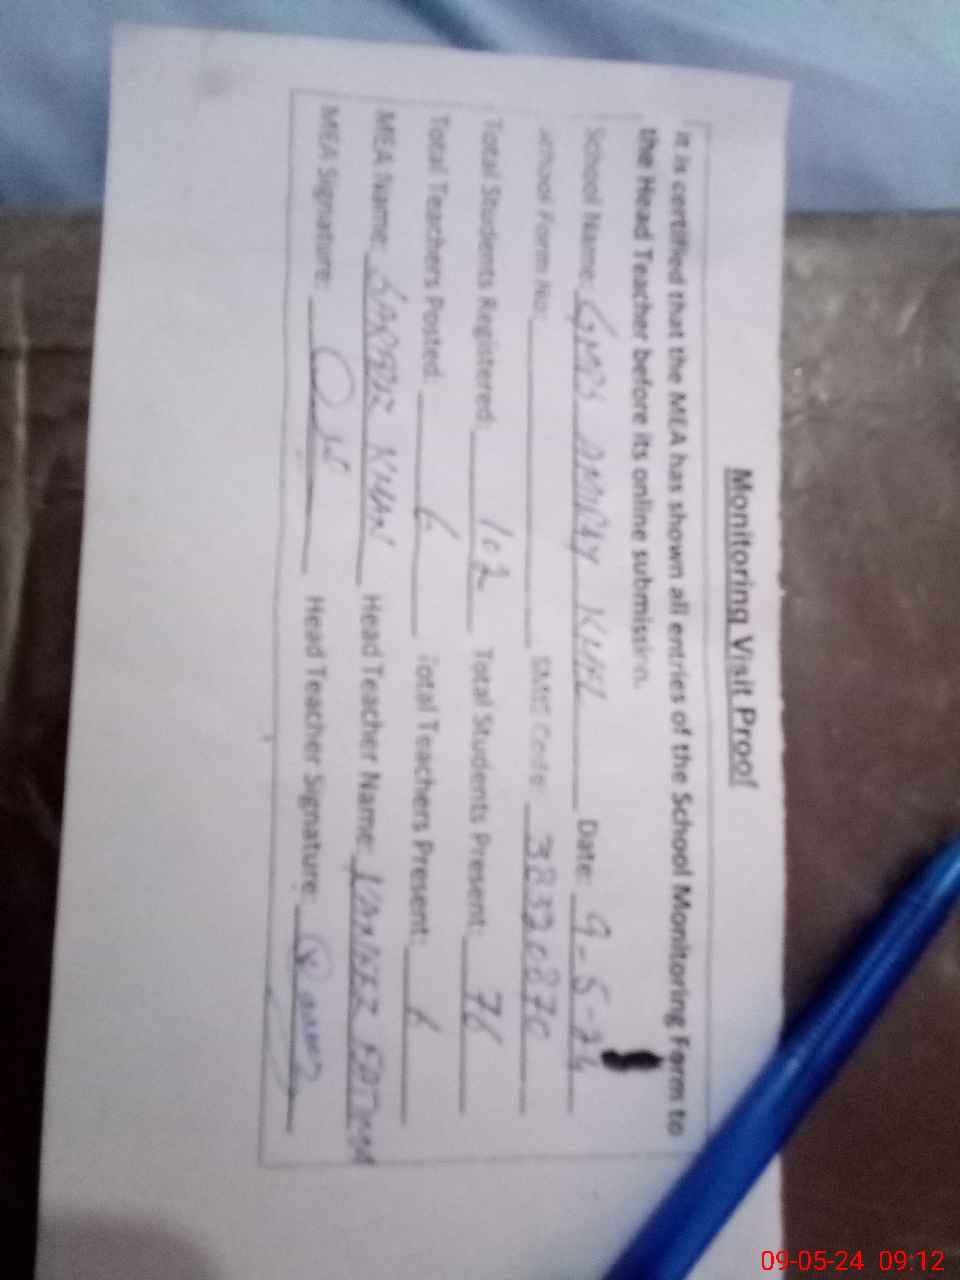 Monitoring Visit Proof
It is certified that the MEA has shown all entries of the School Monitoring Form to
the Head Teacher before its online submission.
School Name: GMPS KHEL Date: 9-5-24
School Form No: EMIS Code: 38320870
Total Students Registered: 102 Total Students Present: 76
Total Teachers Posted: 6 Total Teachers Present: 6
MEA Name: KHAN Head Teacher Name: FATIMA
MEA Signature: Head Teacher Signature:
09-05-24 09:12